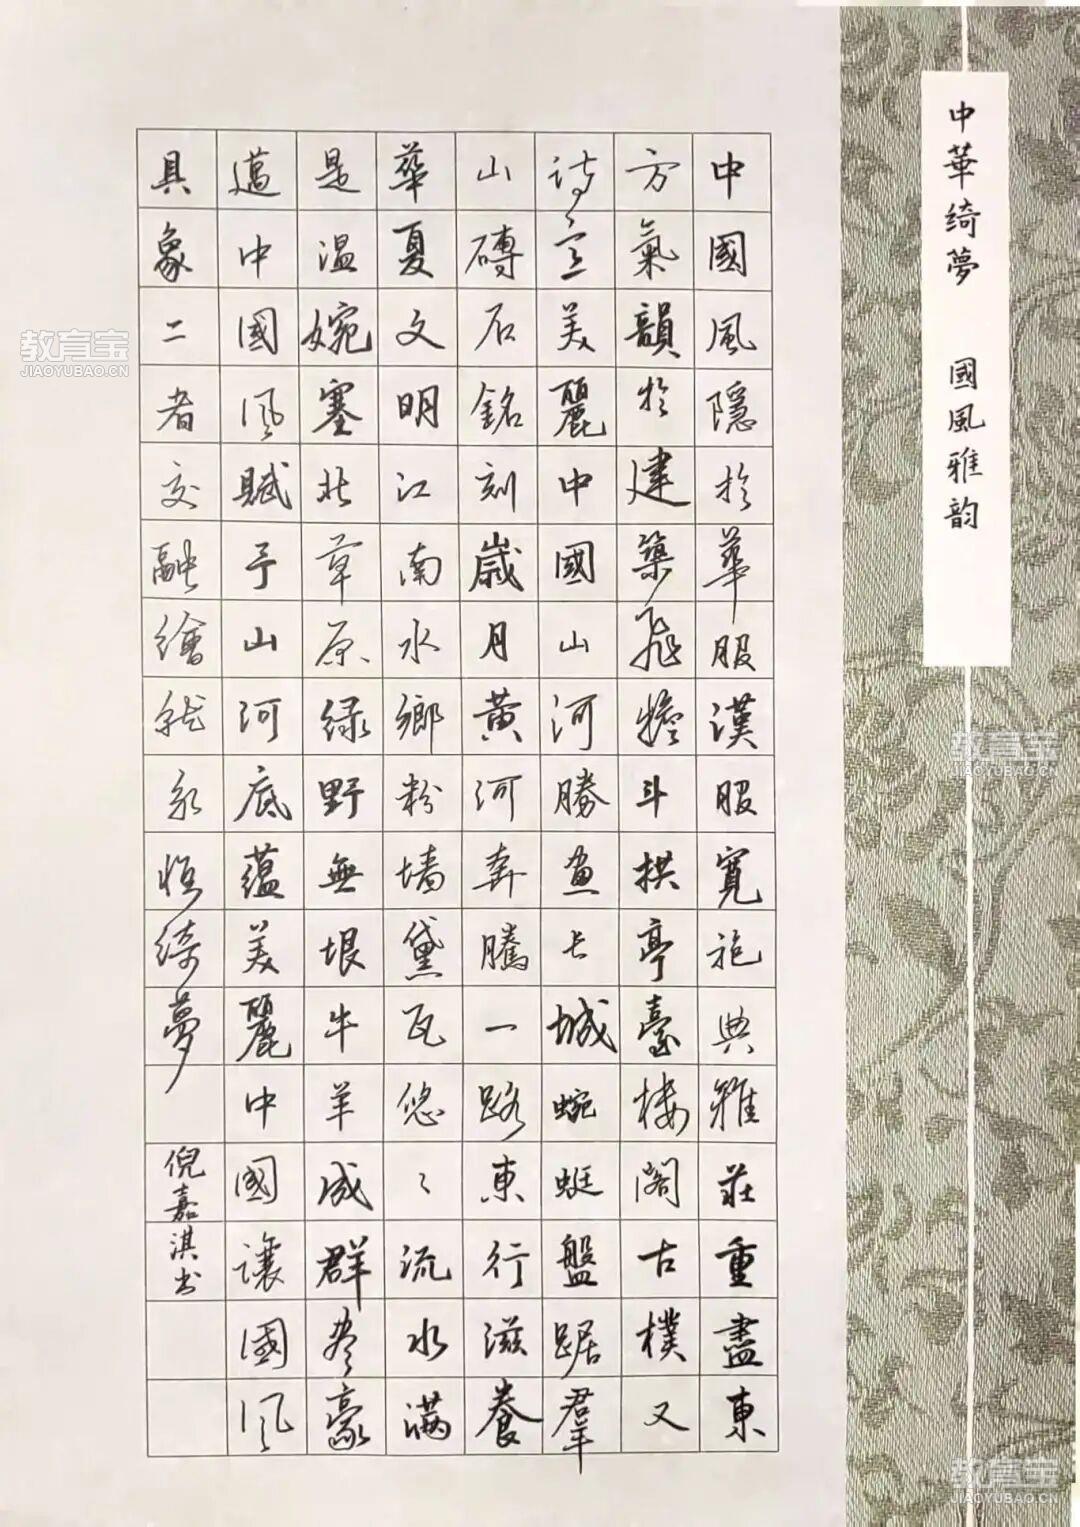 中華綺夢 國風雅韵
中國風隱於華服漢服寬袍典雅莊重盡東
方氣韻於建築飛檐斗拱亭臺樓閣古樸又
詩意美麗中國山河勝畫長城蜿蜒盤踞羣
山磚石銘刻歲月黃河奔騰一路東行滋養
華夏文明江南水鄉粉墻黛瓦悠〻流水滿
是温婉塞北草原绿野無垠牛羊成群盡豪
邁中國風賦予山河底蕴美麗中國讓國風
具象二者交融繪就永恒綺夢
倪嘉淇书
教育宝
JIAOYUBAO.CN
教育宝
JIAOYUBAO.CN
教育宝
JIAOYUBAO.CN